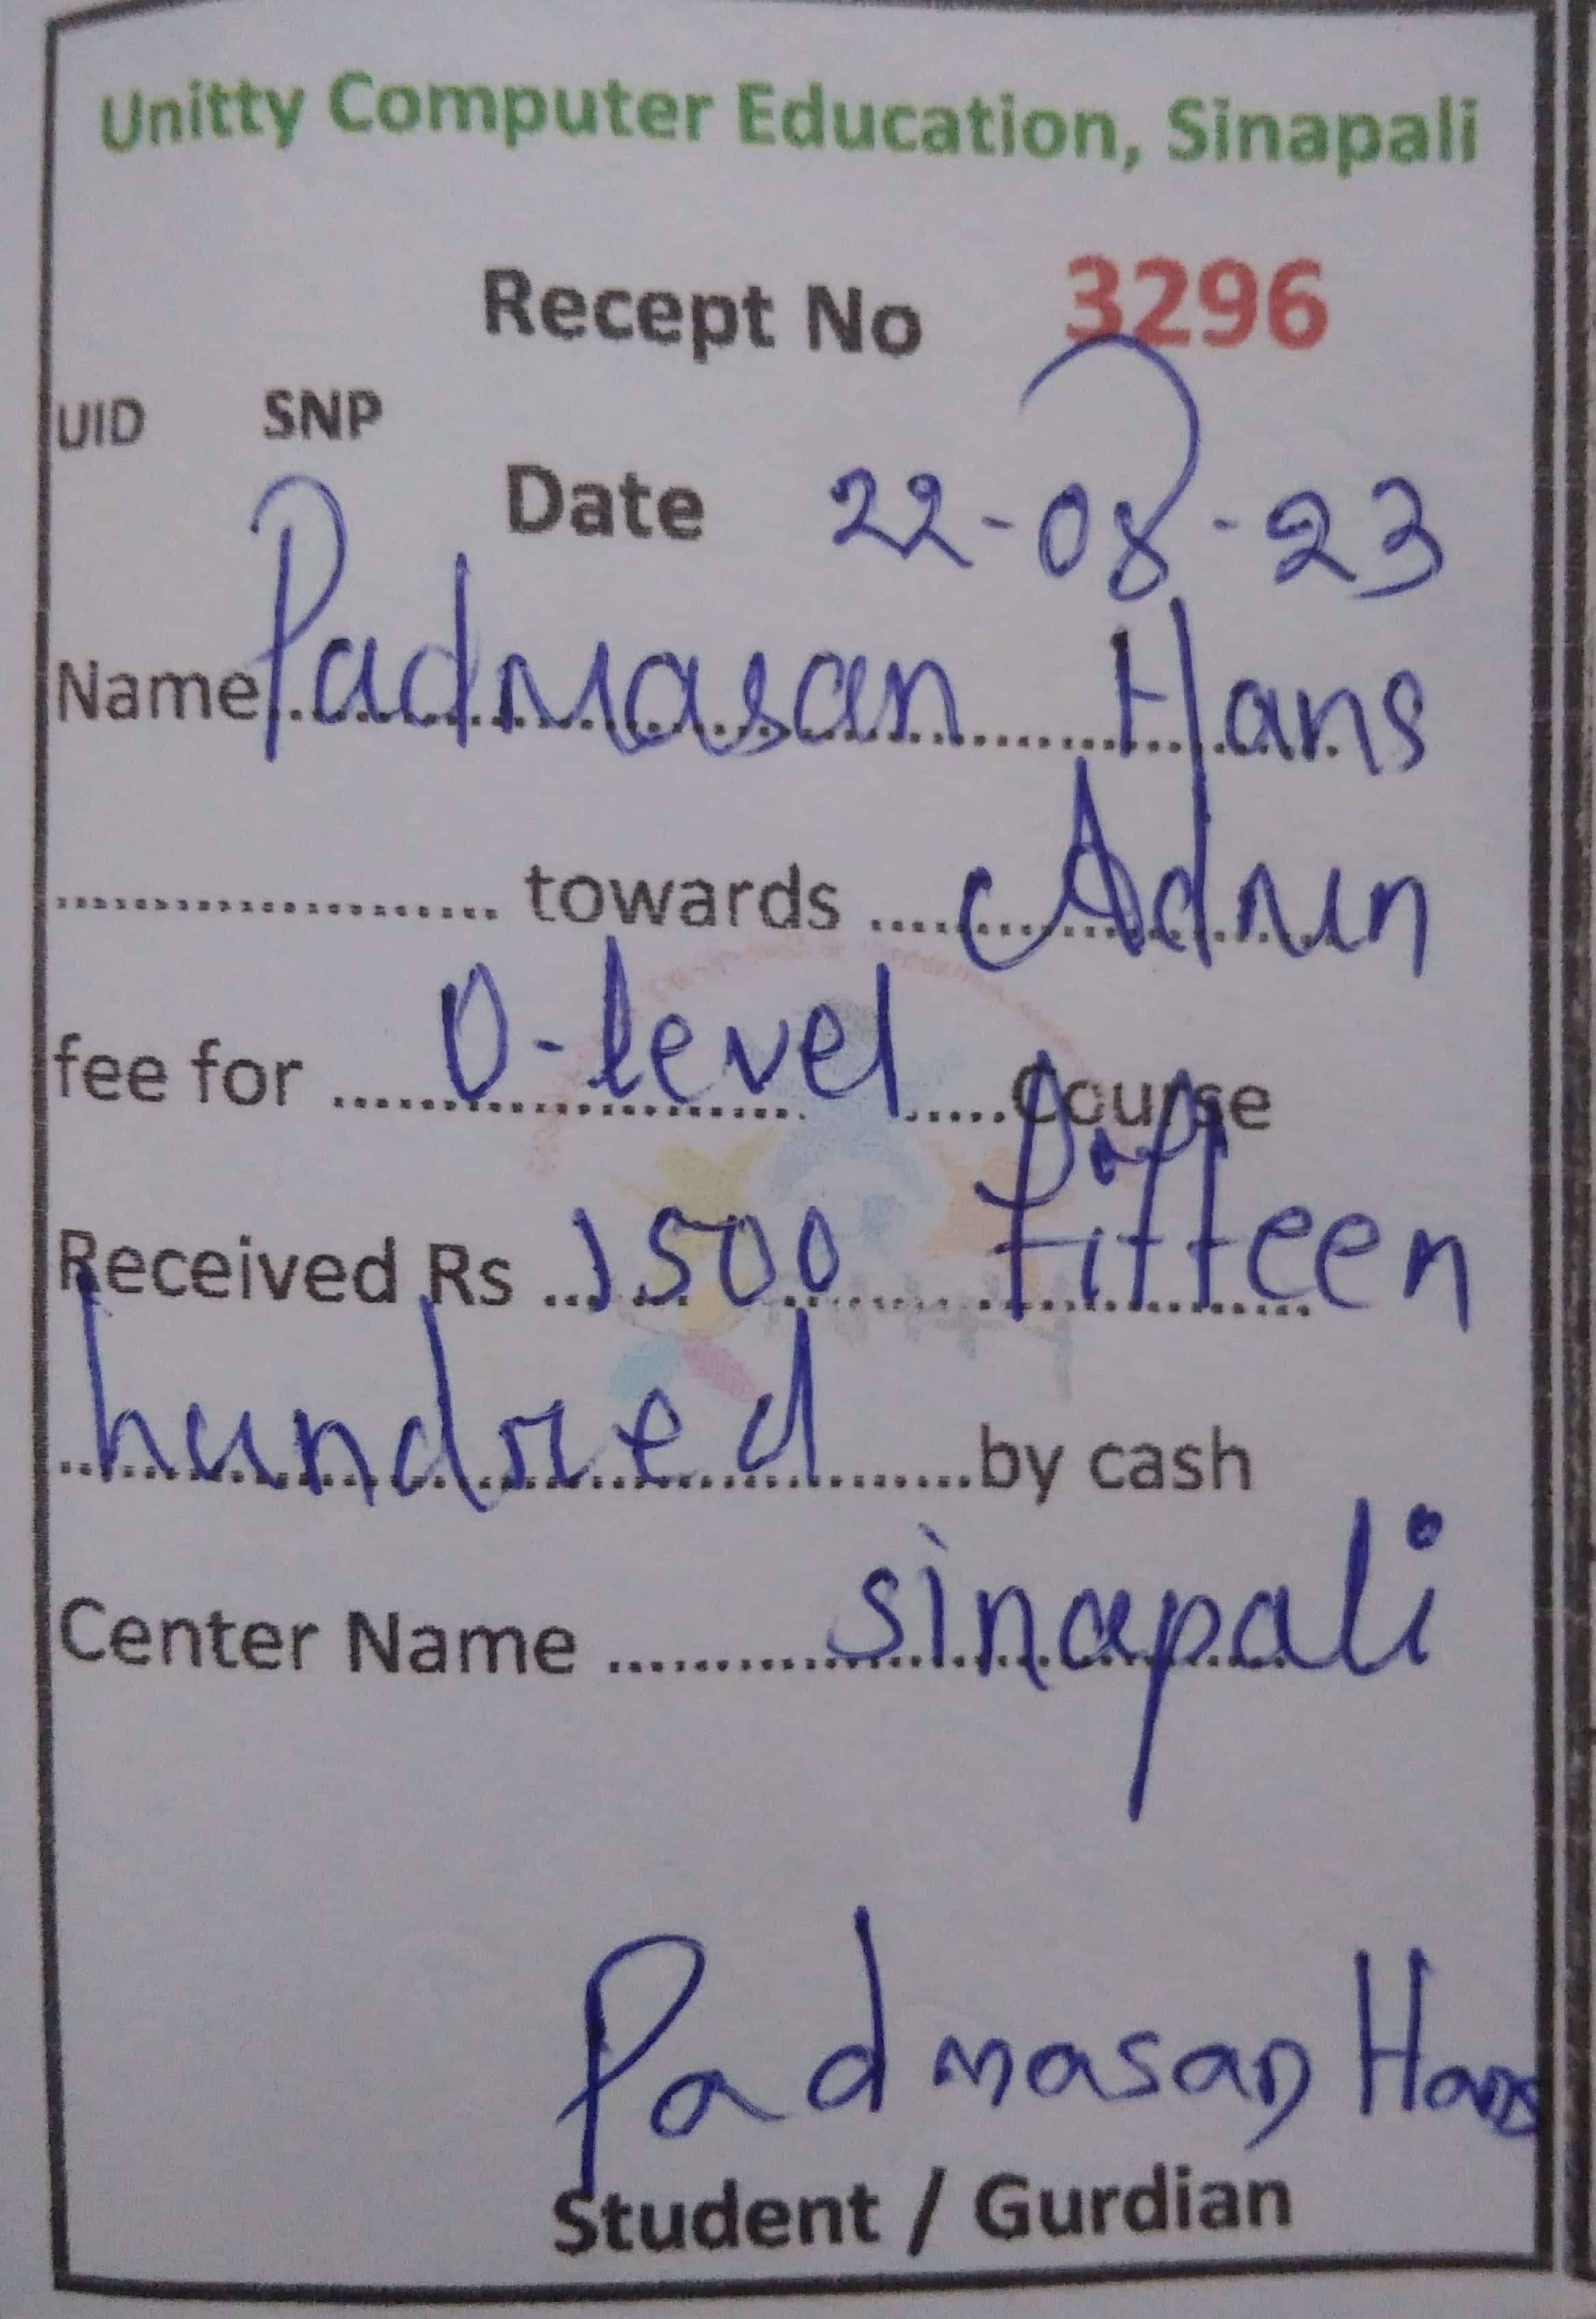 Unitty Computer Education, Sinapali
Recept No 3296
UID SNP
Date 22-08-23
Name Padmasan Hans
.................... towards .... Admn
fee for .... O-level ..... Course
Received Rs ... 1500 fifteen
hundred ........by cash
Center Name ........... sinapali
Padmasan Hans
Student / Gurdian